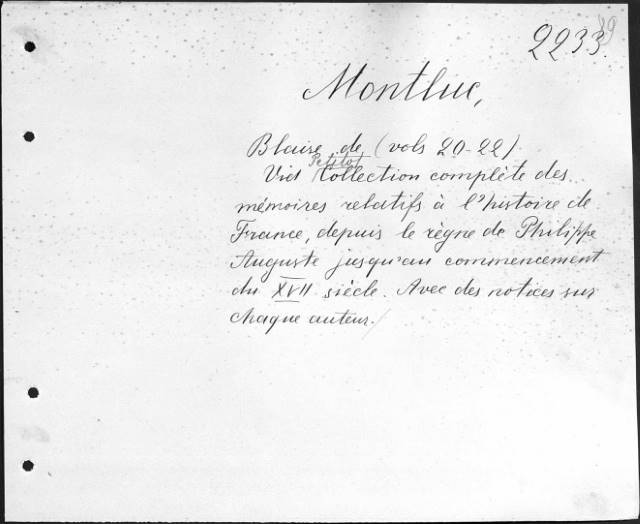 2233.
Montluc,
Blaise de (vols 20-22)
Petitot
Vid Collection complète des
mémoires relatifs à l'histoire de
France, depuis le règne de Philippe
Auguste jusqu'au commencement
du XVII siècle. Avec des notices sur
chaque auteur.